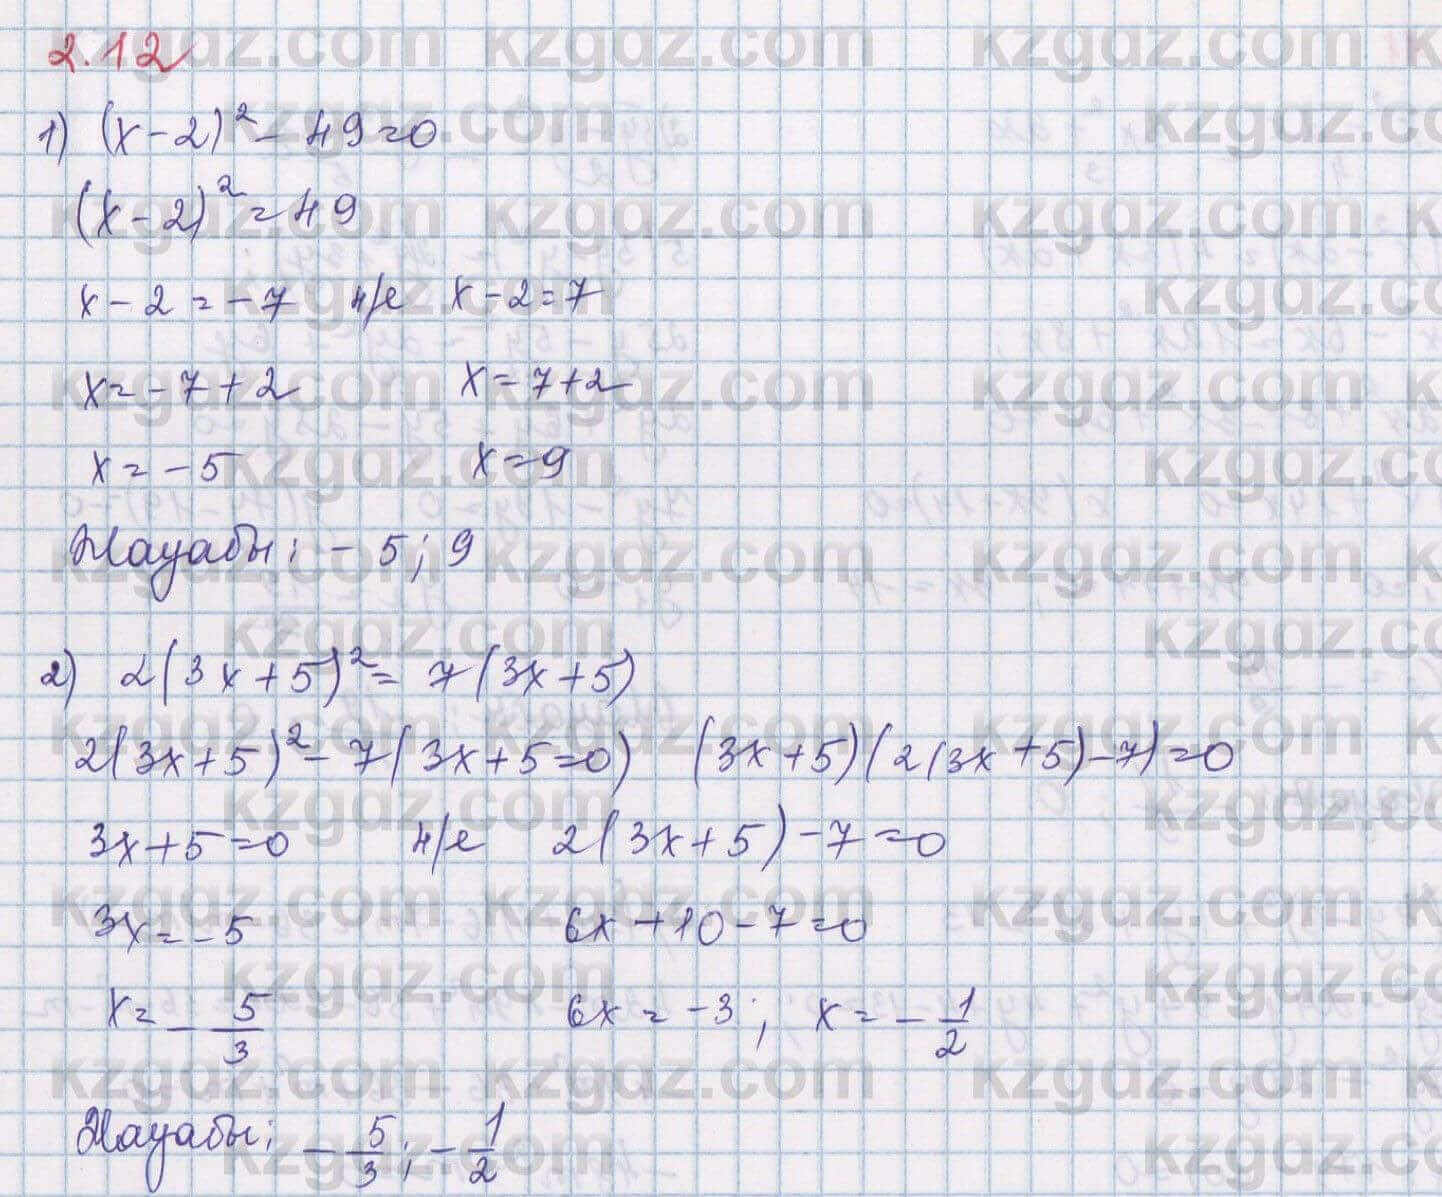 2.12
1) (x-2)² - 49=0
(x-2)² = 49
x-2=-7 н/е x-2=7
x=-7+2 x=7+2
x=-5 x=9
Жауабы: -5; 9
2) 2(3x+5)² = 7(3x+5)
2(3x+5)² - 7(3x+5=0) (3x+5)(2(3x+5)-7)=0
3x+5=0 н/е 2(3x+5)-7=0
3x=-5 6x+10-7=0
x=-5/3 6x=-3; x=-1/2
Жауабы: -5/3; -1/2
kzgdz.com